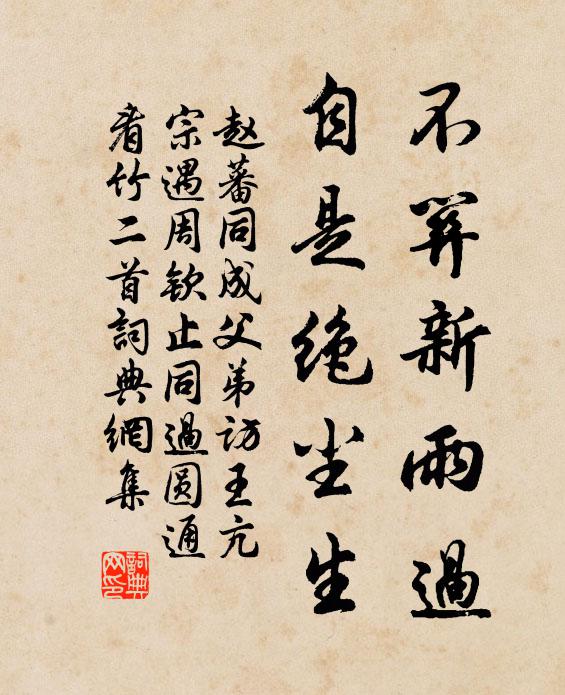 不算新雨過
自是絶尘生
赵蕃同成父弟访王亢
宗遇周钦止同過圆通
看竹二首詞典網集
詞典网印